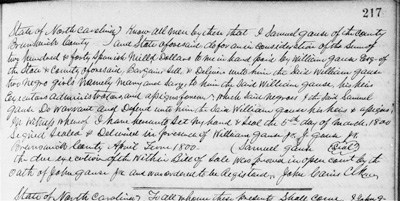 217
State of North Carolina) Know all men by these that I Samuel Gause of the county
Brunswick County ) and State aforesaid do for an in consideration of the Sum of
two hundred & forty Spanish Milld Dollars to me in hand paid by William Gause Esqr of
the State & County aforesaid, Bargain Sell, & Deliver unto him the Said William Gause
two Negro girls Namely Mariam and Suey, to him the Said William Gause, his heirs
Executors Administrators and assigns forever) which Said Negroes I the Said Samuel
Gause Do Warrant and Defend unto him the Said William Gause his heirs & assigns
In Witness whereof I have hereunto Set my hand & Seal the 5th day of March 1800
Signed Sealed & Delivered in presence of William Gause Jr, J Gause Jr.
Brunswick County April Term 1800. (Samuel Gause (Seal)
The due execution of the Within Bill of Sale was proved in open court by the
Oath of John Gause Jr. and was ordered to be Registered. John Cains C Ck
State of North Carolina) To all whom these presents Shall come I John G